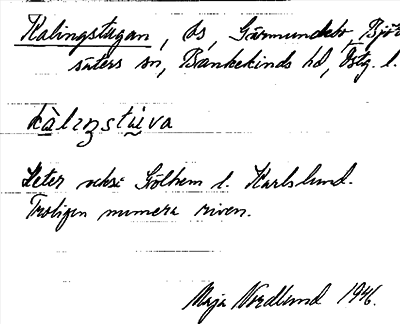 Kalingstugan, ds, Gärmundebo, Björ
säters sn, Bankekinds hd, Östg. l.
kàlıŋstųva
Heter också Sölhem l. Karlslund.
Troligen numera riven.
Maja Nordlund 1946.